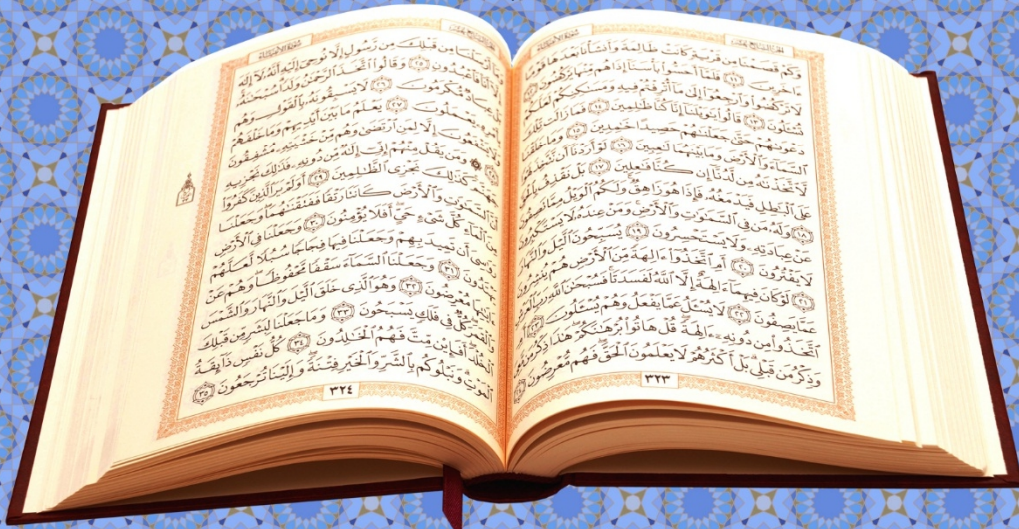 الجزء السابع عشر
سورة الأنبياء
وَكَمْ قَصَمْنَا مِن قَرْيَةٍ كَانَتْ ظَالِمَةً وَأَنشَأْنَا بَعْدَهَا قَوْمًا
ءَاخَرِينَ ١١ فَلَمَّآ أَحَسُّوا۟ بَأْسَنَآ إِذَا هُم مِّنْهَا يَرْكُضُونَ ١٢
لَا تَرْكُضُوا۟ وَٱرْجِعُوٓا۟ إِلَىٰ مَآ أُتْرِفْتُمْ فِيهِ وَمَسَٰكِنِكُمْ لَعَلَّكُمْ
تُسْـَٔلُونَ ١٣ قَالُوا۟ يَٰوَيْلَنَآ إِنَّا كُنَّا ظَٰلِمِينَ ١٤ فَمَا زَالَت تِّلْكَ
دَعْوَىٰهُمْ حَتَّىٰ جَعَلْنَٰهُمْ حَصِيدًا خَٰمِدِينَ ١٥ وَمَا خَلَقْنَا
ٱلسَّمَآءَ وَٱلْأَرْضَ وَمَا بَيْنَهُمَا لَٰعِبِينَ ١٦ لَوْ أَرَدْنَآ أَن نَّتَّخِذَ لَهْوًا
لَّٱتَّخَذْنَٰهُ مِن لَّدُنَّآ إِن كُنَّا فَٰعِلِينَ ١٧ بَلْ نَقْذِفُ بِٱلْحَقِّ
عَلَى ٱلْبَٰطِلِ فَيَدْمَغُهُۥ فَإِذَا هُوَ زَاهِقٌ وَلَكُمُ ٱلْوَيْلُ مِمَّا تَصِفُونَ
١٨ وَلَهُۥ مَن فِى ٱلسَّمَٰوَٰتِ وَٱلْأَرْضِ وَمَنْ عِندَهُۥ لَا يَسْتَكْبِرُونَ
عَنْ عِبَادَتِهِۦ وَلَا يَسْتَحْسِرُونَ ١٩ يُسَبِّحُونَ ٱلَّيْلَ وَٱلنَّهَارَ
لَا يَفْتُرُونَ ٢٠ أَمِ ٱتَّخَذُوٓا۟ ءَالِهَةً مِّنَ ٱلْأَرْضِ هُمْ يُنشِرُونَ
٢١ لَوْ كَانَ فِيهِمَآ ءَالِهَةٌ إِلَّا ٱللَّهُ لَفَسَدَتَا فَسُبْحَٰنَ ٱللَّهِ رَبِّ ٱلْعَرْشِ
عَمَّا يَصِفُونَ ٢٢ لَا يُسْـَٔلُ عَمَّا يَفْعَلُ وَهُمْ يُسْـَٔلُونَ ٢٣ أَمِ
ٱتَّخَذُوا۟ مِن دُونِهِۦٓ ءَالِهَةً قُلْ هَاتُوا۟ بُرْهَٰنَكُمْ هَٰذَا ذِكْرُ مَن مَّعِىَ
وَذِكْرُ مَن قَبْلِى بَلْ أَكْثَرُهُمْ لَا يَعْلَمُونَ ٱلْحَقَّ فَهُم مُّعْرِضُونَ ٢٤
٣٢٣
سورة الأنبياء
وَمَآ أَرْسَلْنَا مِن قَبْلِكَ مِن رَّسُولٍ إِلَّا نُوحِىٓ إِلَيْهِ أَنَّهُۥ لَآ إِلَٰهَ
إِلَّآ أَنَا۠ فَٱعْبُدُونِ ٢٥ وَقَالُوا۟ ٱتَّخَذَ ٱلرَّحْمَٰنُ وَلَدًا سُبْحَٰنَهُۥ
بَلْ عِبَادٌ مُّكْرَمُونَ ٢٦ لَا يَسْبِقُونَهُۥ بِٱلْقَوْلِ وَهُم
بِأَمْرِهِۦ يَعْمَلُونَ ٢٧ يَعْلَمُ مَا بَيْنَ أَيْدِيهِمْ وَمَا خَلْفَهُمْ
وَلَا يَشْفَعُونَ إِلَّا لِمَنِ ٱرْتَضَىٰ وَهُم مِّنْ خَشْيَتِهِۦ مُشْفِقُونَ
٢٨ ۞ وَمَن يَقُلْ مِنْهُمْ إِنِّىٓ إِلَٰهٌ مِّن دُونِهِۦ فَذَٰلِكَ نَجْزِيهِ
جَهَنَّمَ كَذَٰلِكَ نَجْزِى ٱلظَّٰلِمِينَ ٢٩ أَوَلَمْ يَرَ ٱلَّذِينَ كَفَرُوٓا۟
أَنَّ ٱلسَّمَٰوَٰتِ وَٱلْأَرْضَ كَانَتَا رَتْقًا فَفَتَقْنَٰهُمَا وَجَعَلْنَا
مِنَ ٱلْمَآءِ كُلَّ شَىْءٍ حَىٍّ أَفَلَا يُؤْمِنُونَ ٣٠ وَجَعَلْنَا فِى ٱلْأَرْضِ
رَوَٰسِىَ أَن تَمِيدَ بِهِمْ وَجَعَلْنَا فِيهَا فِجَاجًا سُبُلًا لَّعَلَّهُمْ
يَهْتَدُونَ ٣١ وَجَعَلْنَا ٱلسَّمَآءَ سَقْفًا مَّحْفُوظًا وَهُمْ عَنْ
ءَايَٰتِهَا مُعْرِضُونَ ٣٢ وَهُوَ ٱلَّذِى خَلَقَ ٱلَّيْلَ وَٱلنَّهَارَ وَٱلشَّمْسَ
وَٱلْقَمَرَ كُلٌّ فِى فَلَكٍ يَسْبَحُونَ ٣٣ وَمَا جَعَلْنَا لِبَشَرٍ مِّن قَبْلِكَ
ٱلْخُلْدَ أَفَإِي۟ن مِّتَّ فَهُمُ ٱلْخَٰلِدُونَ ٣٤ كُلُّ نَفْسٍ ذَآئِقَةُ
ٱلْمَوْتِ وَنَبْلُوكُم بِٱلشَّرِّ وَٱلْخَيْرِ فِتْنَةً وَإِلَيْنَا تُرْجَعُونَ ٣٥
٣٢٤